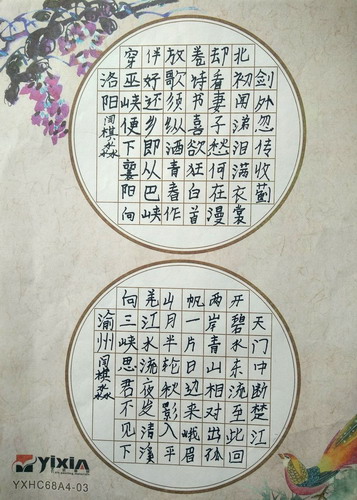 剑外忽传收蓟
北初闻涕泪满衣裳
却看妻子愁何在漫
卷诗书喜欲狂白首
放歌须纵酒青春作
伴好还乡即从巴峡
穿巫峡便下襄阳向
洛阳
闫棋淼
天门中断楚江
开碧水东流至此回
两岸青山相对出孤
帆一片日边来峨眉
山月半轮秋影入平
羌江水流夜发清溪
向三峡思君不见下
渝州
闫棋淼
yixin
YXHC68A4-03